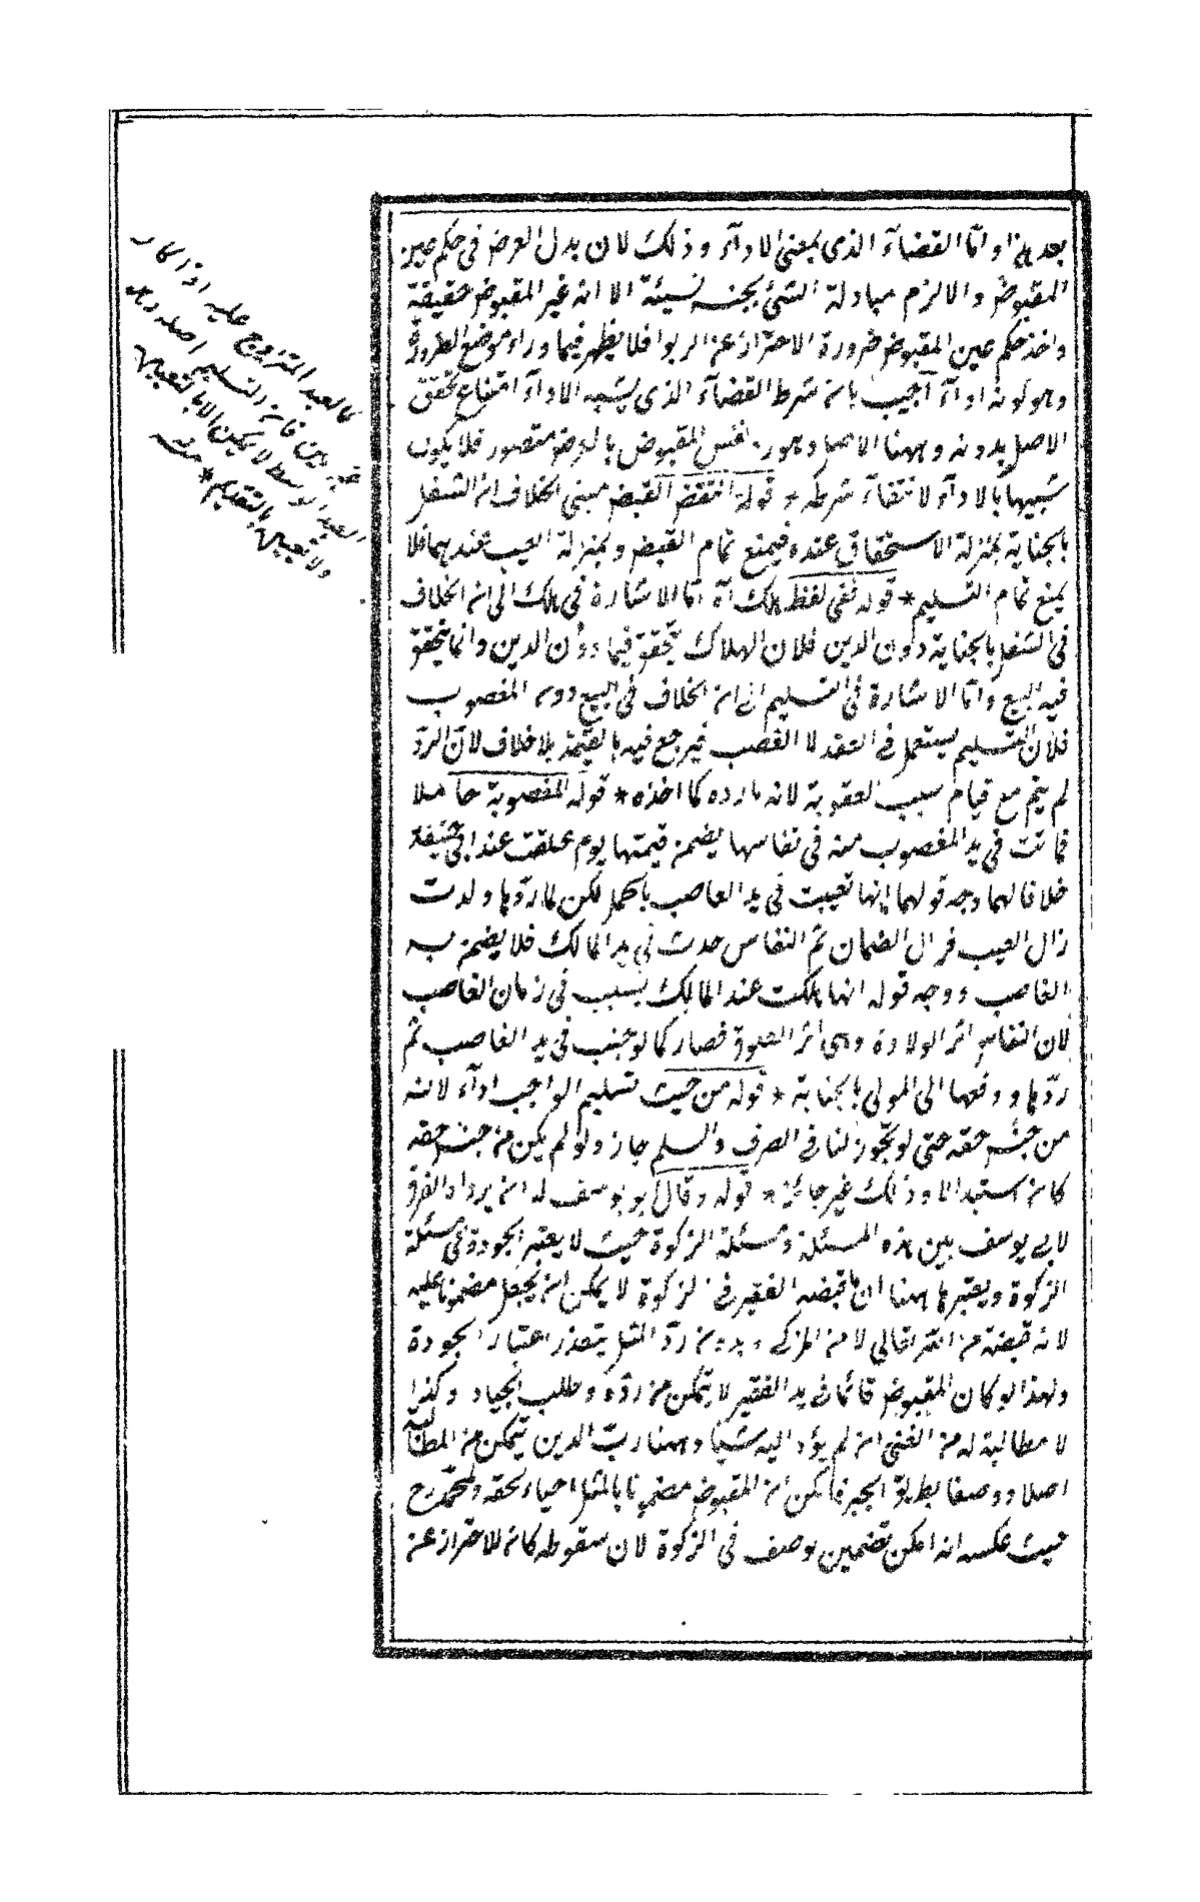 بعد هذا واما القضاء الذى بمعنى الاداء وذلك لان بدل العرض فى حكم عين
المقبوض والا لزم مبادلة الشئ بجنسه نسيئة الا انه غير المقبوض حقيقة
واخذ حكم عين المقبوض ضرورة الاحتراز عن الربوا فلا يظهر فيما وراء موضع الضرورة
وهو كونه اداء اجيب بان من شرط القضاء الذى يشبه الاداء امتناع تحقق
الاصل بدونه وههنا الاصل وهو رد نفس المقبوض بالعرض متصور فلا يكون
شبيها بالاداء لانتفاء شرطه * قوله انتقض القبض مبنى الخلاف ان الشغل
بالجناية بمنزلة الاستحقاق عنده فيمنع تمام القبض وبمنزلة العيب عندهما فلا
يمنع تمام التسليم * قوله ففى لفظ هلك اه اما الاشارة فى هلك الى ان الخلاف
فى الشغل بالجناية دون الدين فلان الهلاك يتحقق فيما دون الدين وانما يتحقق
فيه البيع واما الاشارة فى التسليم الى ان الخلاف فى البيع دون المغصوب
فلان التسليم يستعمل فى العقد لا الغصب فيرجع فيه بالقيمة بلا خلاف لان الرد
لم يتم مع قيام سبب العقوبة لانه ما رده كما اخذه * قوله المغصوبة حاملا
فماتت فى يد المغصوب منه فى نفاسها يضمن قيمتها يوم علقت عند ابى حنيفة
خلافا لهما وجه قولهما انها تعيبت فى يد الغاصب بالحمل لكن لما ردها ولدت
زال العيب فزال الضمان ثم النفاس حدث فى يد المالك فلا يضمن به
الغاصب ووجه قوله انها هلكت عند المالك بسبب فى زمان الغاصب
لان النفاس اثر الولادة وهى اثر العلوق فصار كما لو جنت فى يد الغاصب ثم
ردها ودفعها الى المولى بالجناية * قوله من حيث تسليم الواجب اداء لانه
من جنس حقه حتى لو تجوز لنا فى الصرف والسلم جاز ولو لم يكن من جنس حقه
كان استبدالا وذلك غير جائز * قوله وقال ابو يوسف له ان يرد اه الفرق
لابى يوسف بين هذه المسئلة ومسئلة الزكوة حيث لا يعتبر الجودة فى مسئلة
الزكوة ويعتبرها ههنا ان ما قبضه الفقير فى الزكوة لا يمكن ان يجعل مضمونا عليه
لانه قبضه من الله تعالى لا من المزكى وبدون رد المثل يتعذر اعتبار الجودة
ولهذا لو كان المقبوض قائما فى يد الفقير لا يتمكن من رده وطلب الجياد وكذا
لا مطالبة له من الغنى ان لم يؤد اليه شيئا وههنا رب الدين يتمكن من المطالبة
اصلا ووصفا بطريق الجبر فامكن ان المقبوض مضمونا بالمثل احياء لحقه ولمحمد رح
حيث عكسه انه امكن تضمين وصف فى الزكوة لان سقوطه كان للاحتراز عن
كالعبد المتزوج عليه اذا كان
غير عين فان التسليم اصله
العبد الوسط لا يمكن الا بالتعيين
ولا تعيين بالتقديم * منه